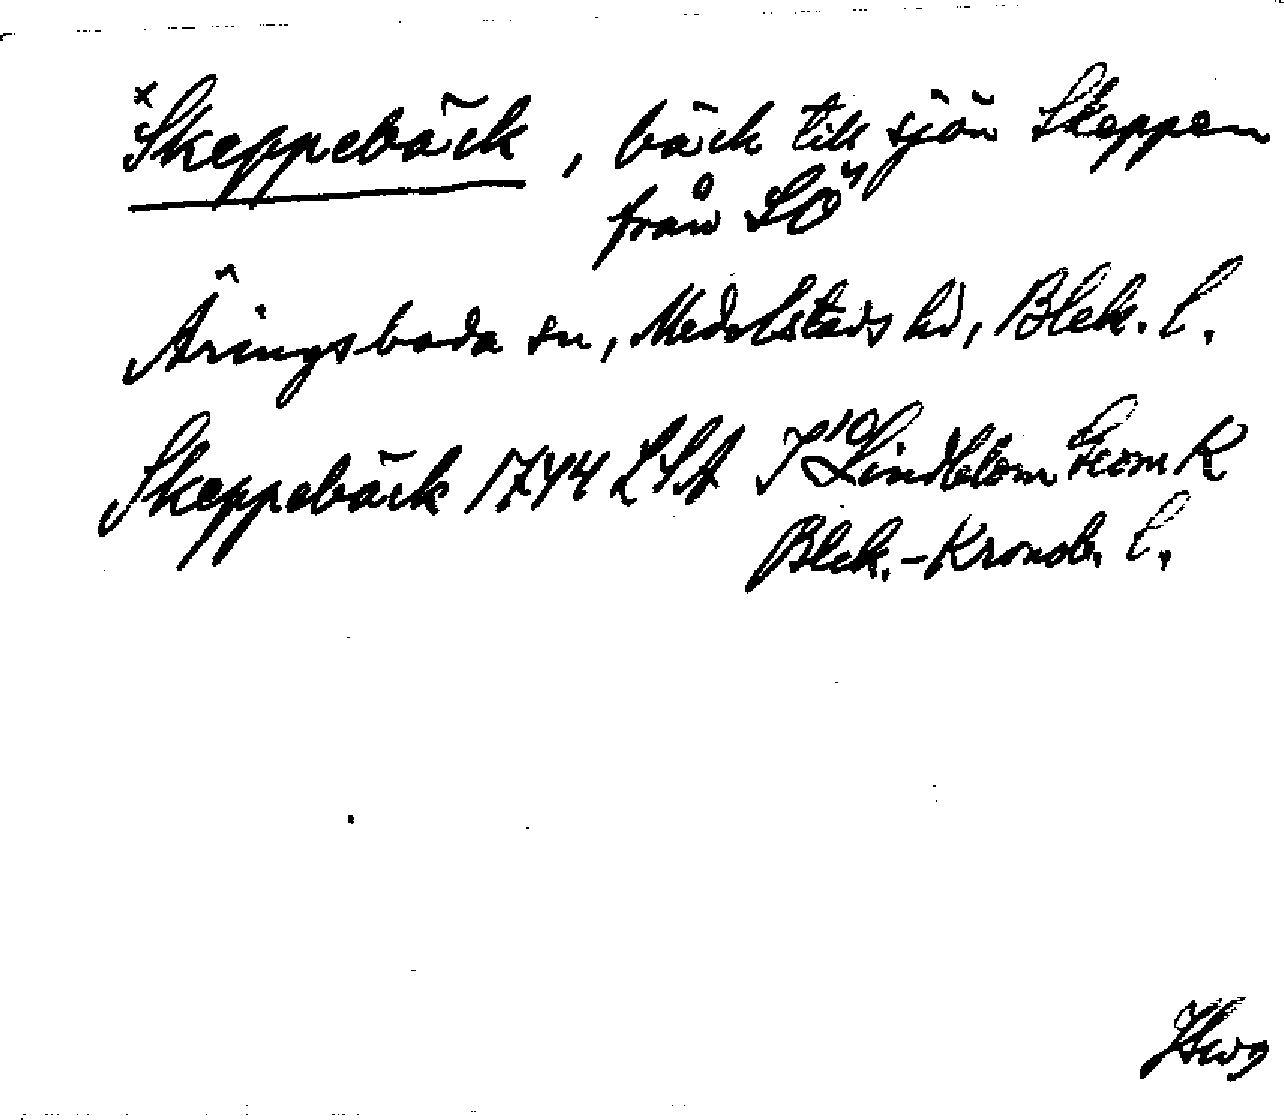 ˣSkeppebäck, bäck till sjön Skeppen
från SÖ
Äringsboda sn, Medelstads hd, Blek. l.
Skeppebäck 1744 LSA J 10 Lindblom Geom K
Blek.-Kronob. l.